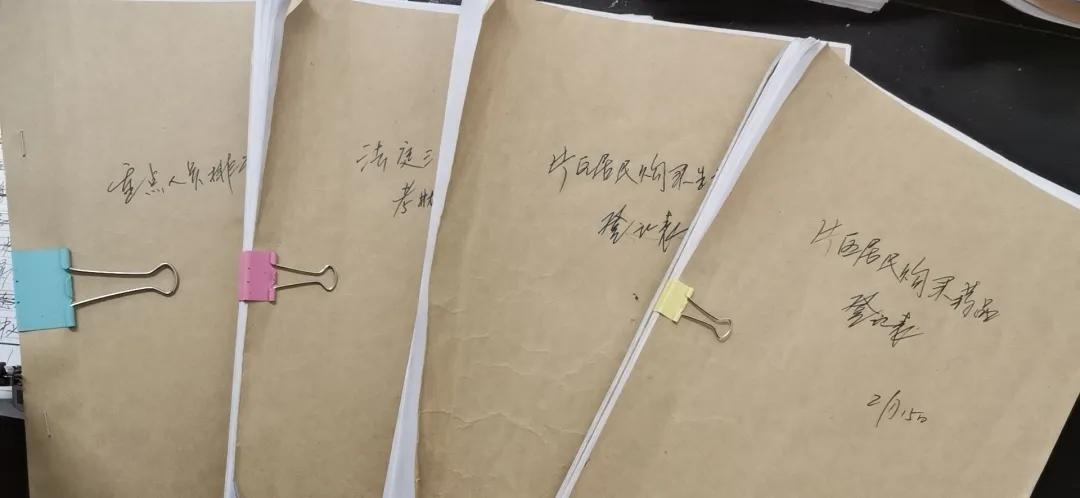 重点人员排
法庭三
考
片区居民购买生
登记表
片区居民购买药品
登记表
2月15日